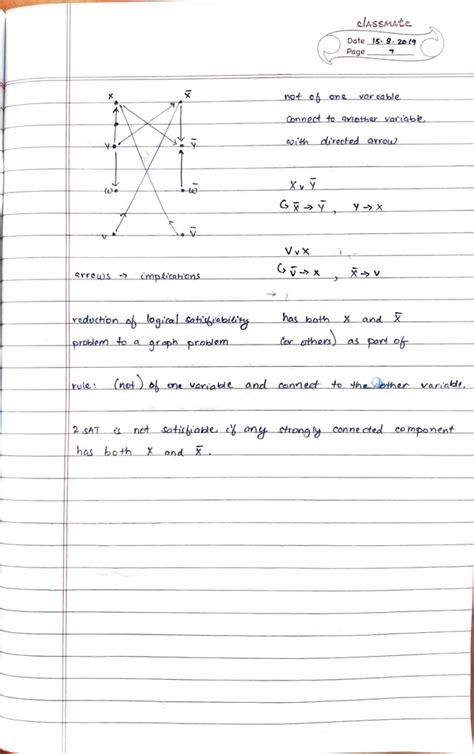 classmate
Date 15.8.2019
Page 7
x x̄
not of one variable
connect to another variable
y ȳ
with directed arrow
w w̄
x ∨ ȳ
x̄ → ȳ, y → x
v v̄
v ∨ x
v̄ → x, x̄ → v
arrows → implications
reduction of logical satisfiability
problem to a graph problem
has both x and x̄
(or others) as part of
rule: (not) of one variable and connect to the other variable.
2 SAT is not satisfiable if any strongly connected component
has both x and x̄.